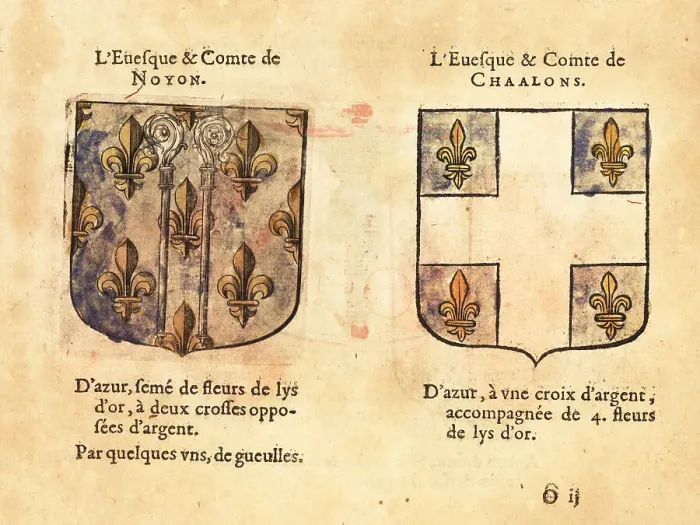 L'Eueſque & Comte de
NOYON.
D'azur, ſemé de fleurs de lys
d'or, à deux croſſes oppo-
ſées d'argent.
Par quelques vns, de gueulles.
L'Eueſque & Comte de
CHAALONS.
D'azur, à vne croix d'argent,
accompagnée de 4. fleurs
de lys d'or.
6 ij